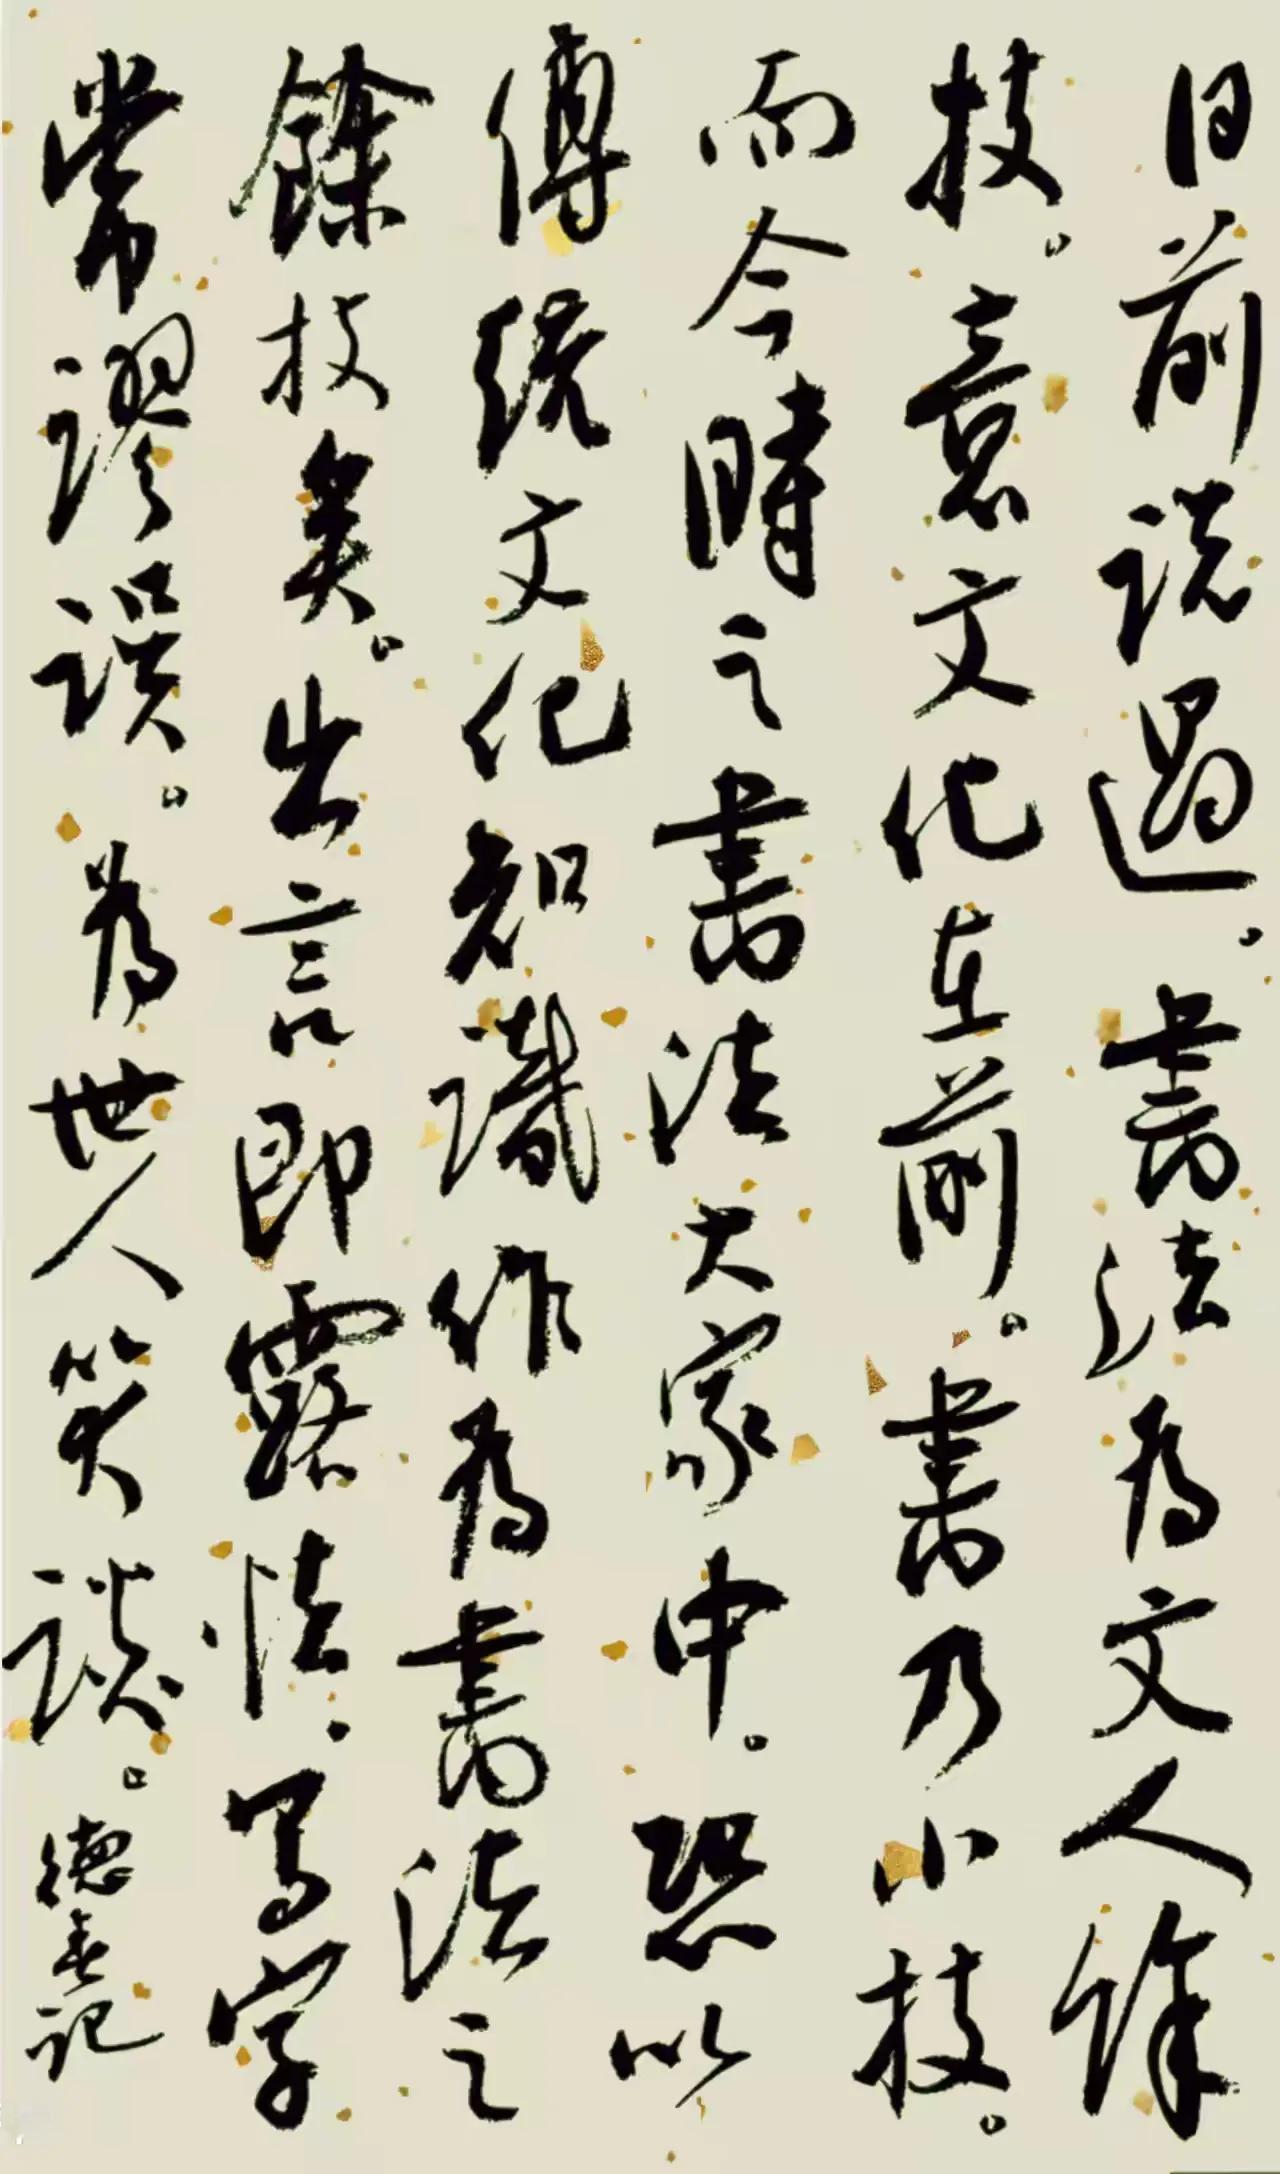 日前说過。書法為文人馀
技。意文化在前。書乃小技。
而今時之書法大家中。恐以
傳统文化知識作為書法之
餘技矣。出言即露怯。写字
常謬误。為世人笑谈。德善记